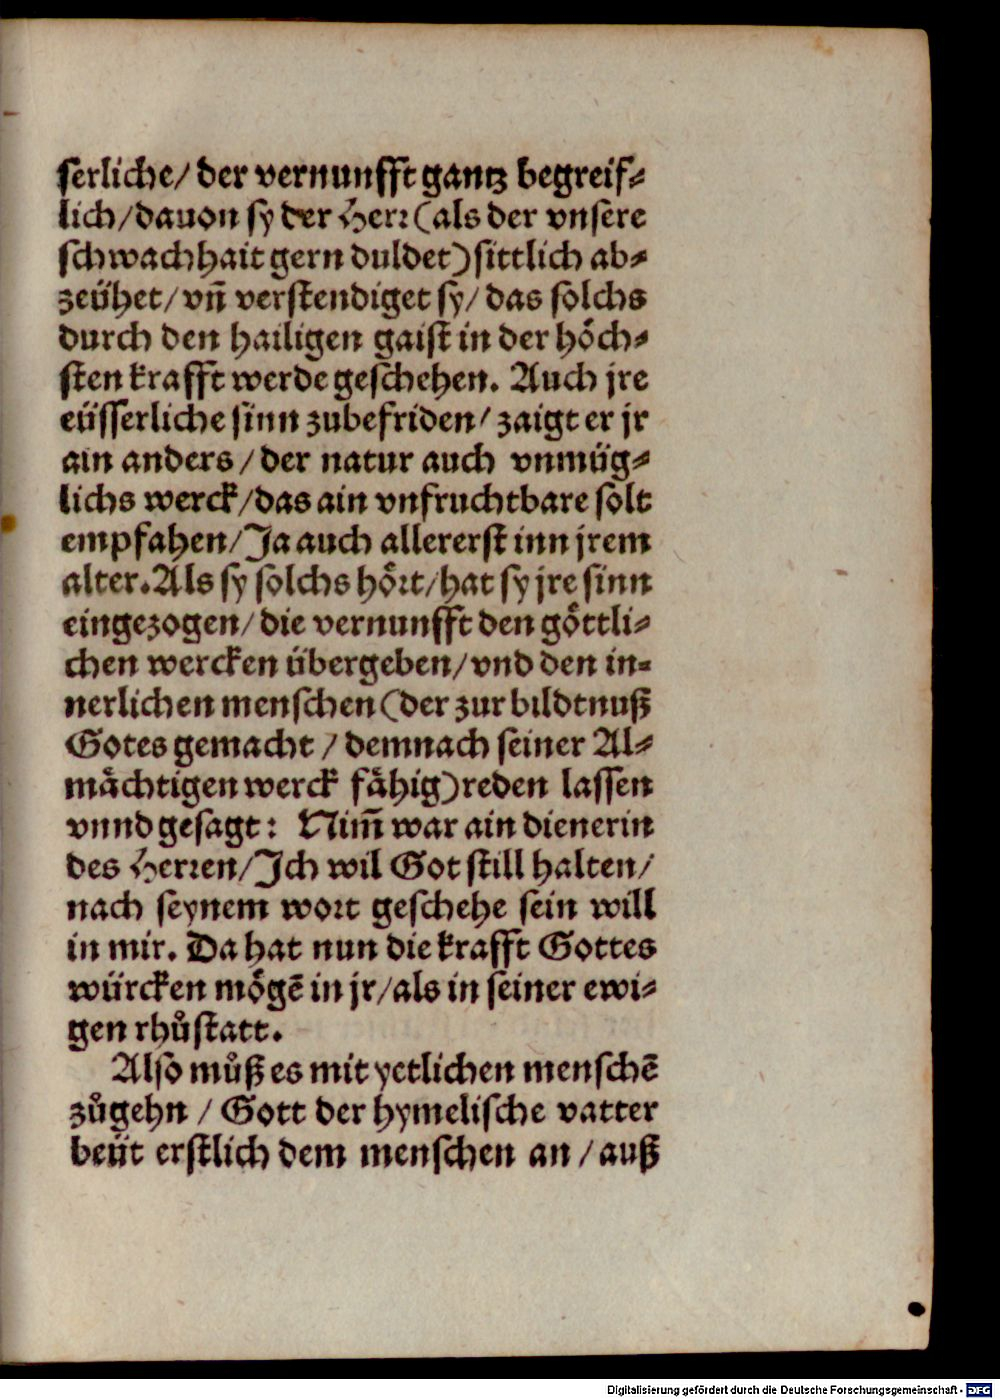 ſerliche/ der vernunfft gantz begreif⸗
lich/dauon ſy der Herꝛ(als der vnſere
ſchwachhait gern duldet)ſittlich ab⸗
zeühet/ vñ verſtendiget ſy/ das ſolchs
durch den hailigen gaiſt in der hoͤch⸗
ſten krafft werde geſchehen. Auch jre
eüſſerliche ſinn zubefriden/ zaigt er jr
ain anders/ der natur auch vnmüg⸗
lichs werck/das ain vnfruchtbare ſolt
empfahen/Ja auch allererſt inn jrem
alter.Als ſy ſolchs hoͤꝛt/hat ſy jre ſinn
eingezogen/ die vernunfft den goͤttli⸗
chen wercken übergeben/vnd den in⸗
nerlichen menſchen(der zur bildtnuß
Gotes gemacht / demnach ſeiner Al⸗
maͤchtigen werck faͤhig)reden laſſen
vnnd geſagt: Nim̃ war ain dienerin
des Herꝛen/Ich wil Got ſtill halten/
nach ſeynem woꝛt geſchehe ſein will
in mir. Da hat nun die krafft Gottes
würcken moͤgẽ in jr/als in ſeiner ewi⸗
gen rhuͦſtatt.
Alſo muͦß es mit yetlichen menſchẽ
zuͦgehn / Gott der hymeliſche vatter
beüt erſtlich dem menſchen an / auß
Digitalisierung gefördert durch die Deutsche Forschungsgemeinschaft - DFG